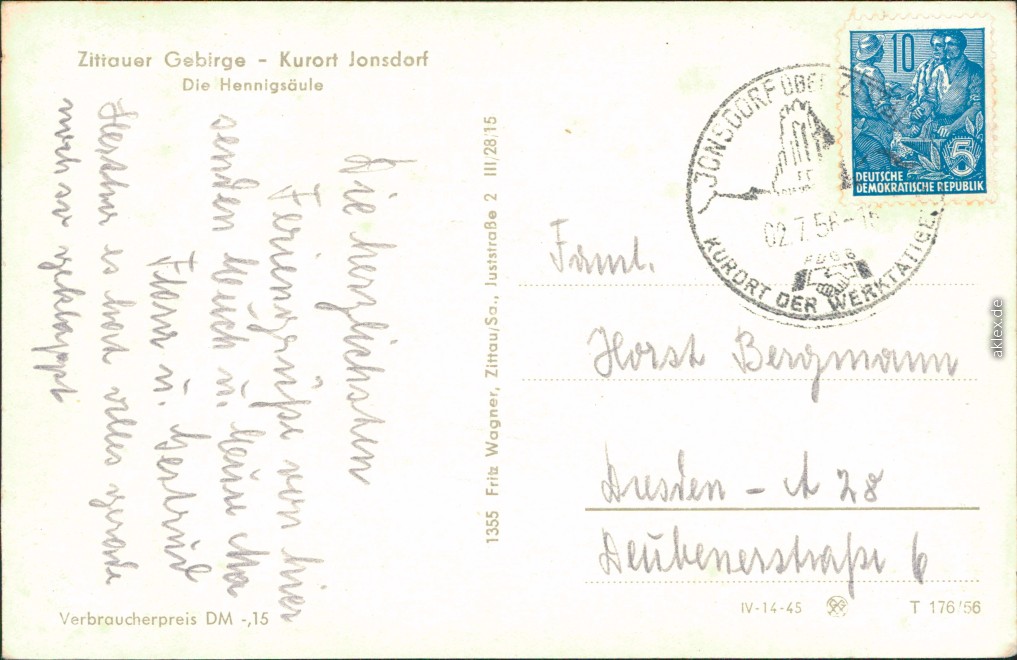 Zittauer Gebirge - Kurort Jonsdorf
Die Hennigsäule
Die herzlichsten
Feriengrüße von hier
senden Euch u.
Flora u. Gertrud
Herther es hat alles gerade
noch so geklappt
Verbraucherpreis DM -,15
1355 Fritz Wagner, Zittau/Sa., Juststraße 2 III/28/15
JONSDORF ÜBER
02.7.56-
FDGB
KURORT DER WERKTÄTIGEN
10
5
DEUTSCHE
DEMOKRATISCHE REPUBLIK
Faml.
Horst Bergmann
Dresden - A 28
Deubenerstraße 6
IV-14-45
T 176/56
aklex.de